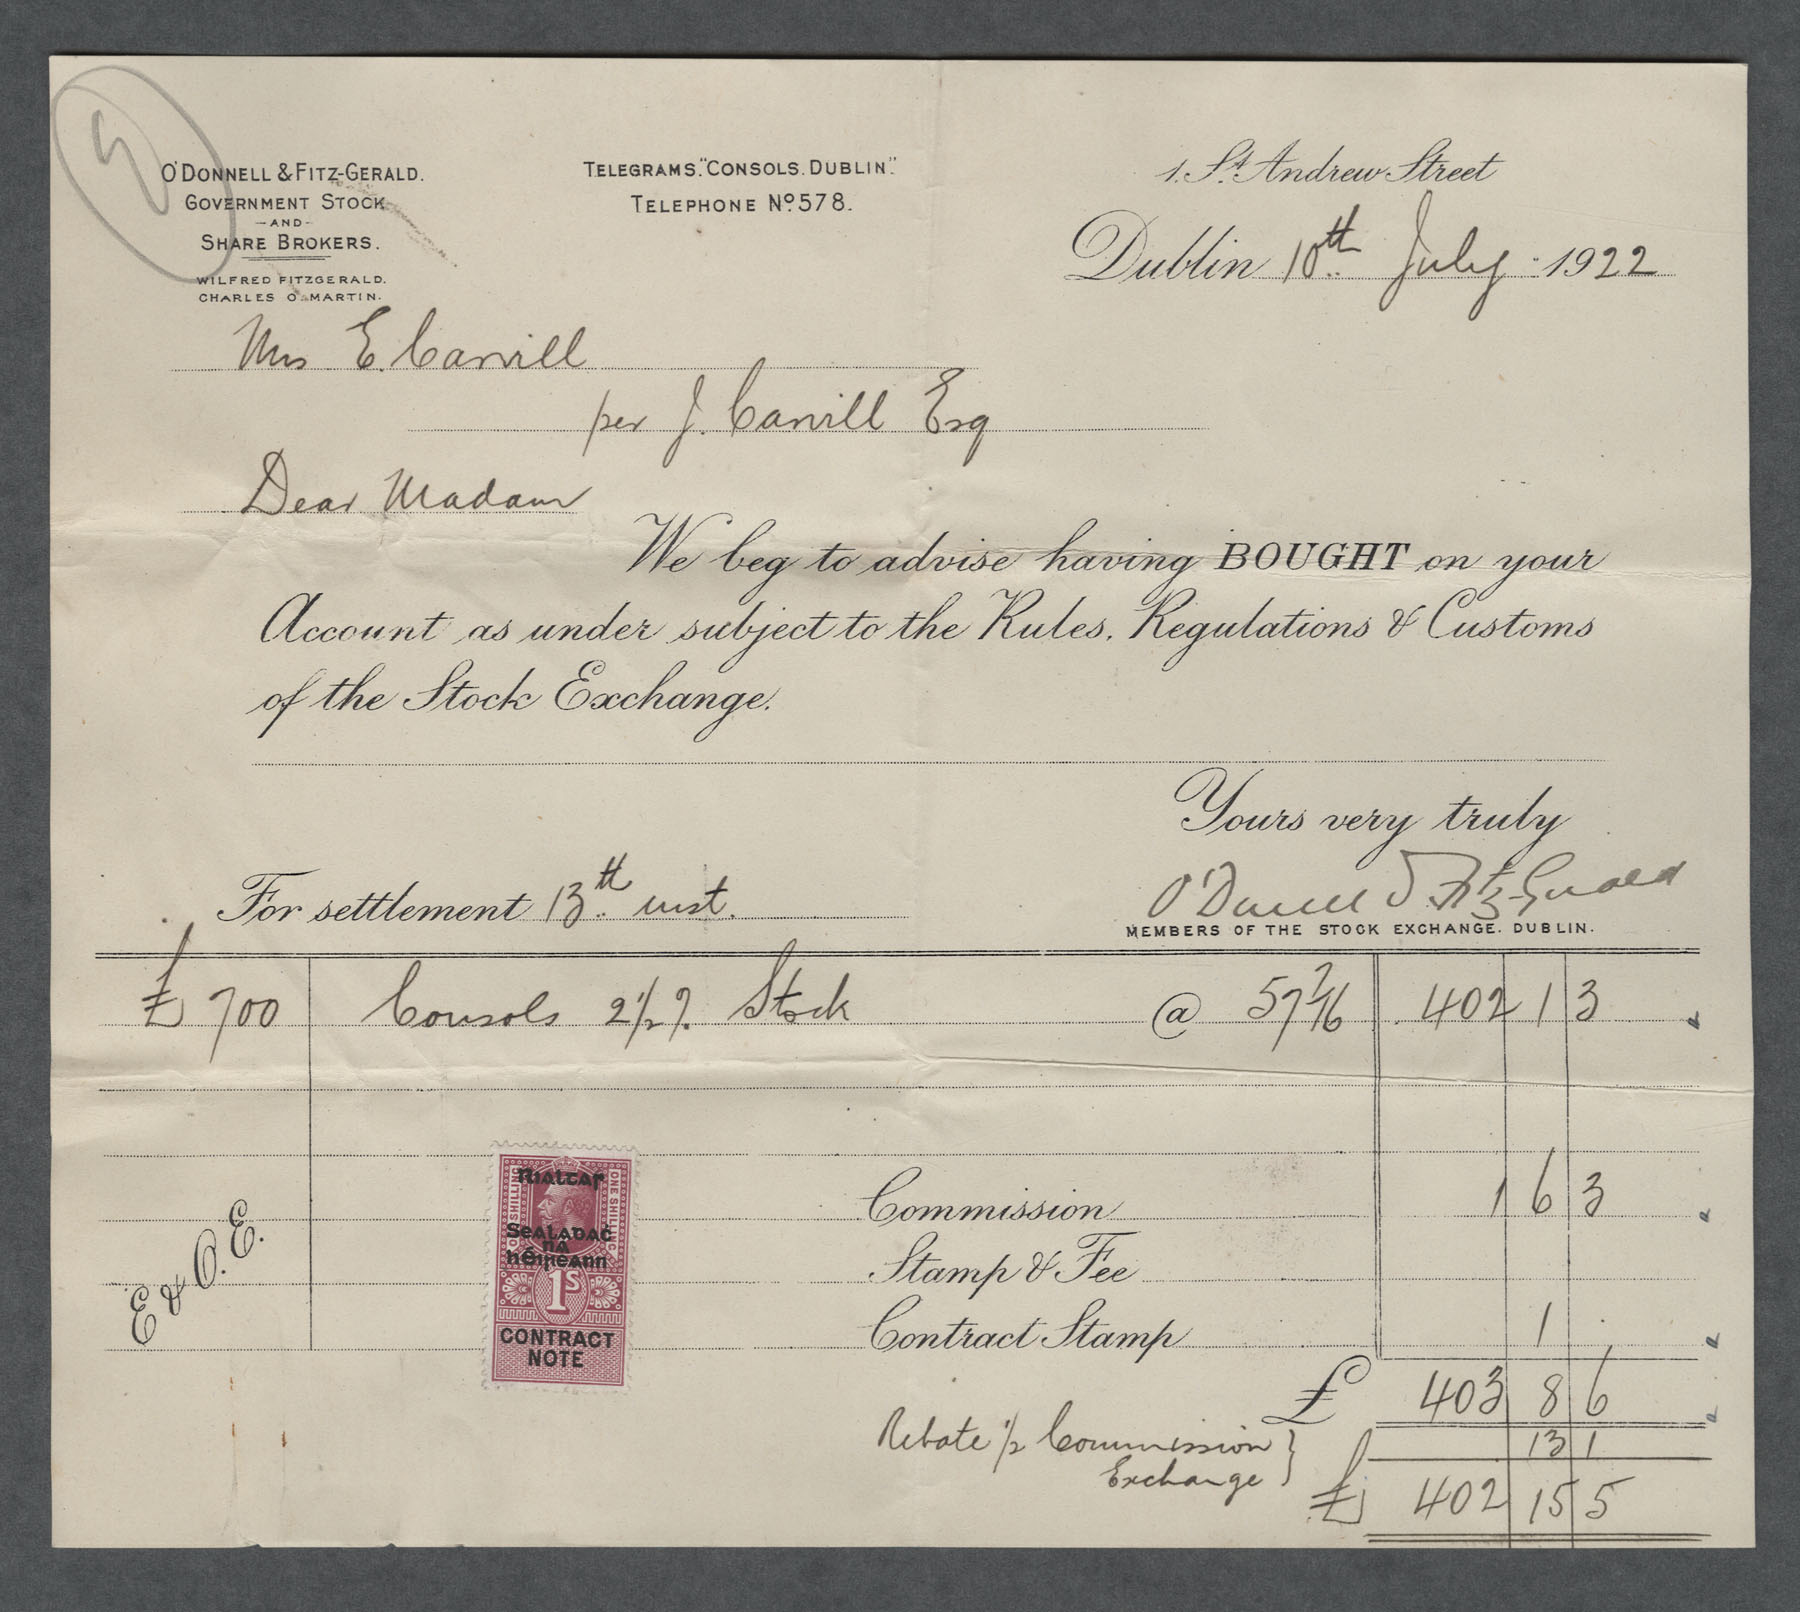 O'DONNELL & FITZ-GERALD.
GOVERNMENT STOCK
-AND-
SHARE BROKERS.
WILFRED FITZGERALD.
CHARLES O. MARTIN.
TELEGRAMS. "CONSOLS. DUBLIN."
TELEPHONE Nº 578.
1. St. Andrew Street
Dublin 10th July 1922
Mrs E. Carvill
per J. Carvill Esq
Dear Madam
We beg to advise having BOUGHT on your
Account as under subject to the Rules, Regulations & Customs
of the Stock Exchange.
Yours very truly
O'Donnell & Fitz-Gerald
MEMBERS OF THE STOCK EXCHANGE. DUBLIN.
For settlement 13th inst.
£ 700 Consols 2½% Stock @ 57 7/16 402 1 3
Commission 1 6 3
Stamp & Fee
Contract Stamp 1
£ 403 8 6
Rebate ½ Commission 13 1
Exchange
£ 402 15 5
E & O. E.
ONE SHILLING
ONE SHILLING
Rialtar
Sealadaċ
na
hÉireann
1S
CONTRACT
NOTE